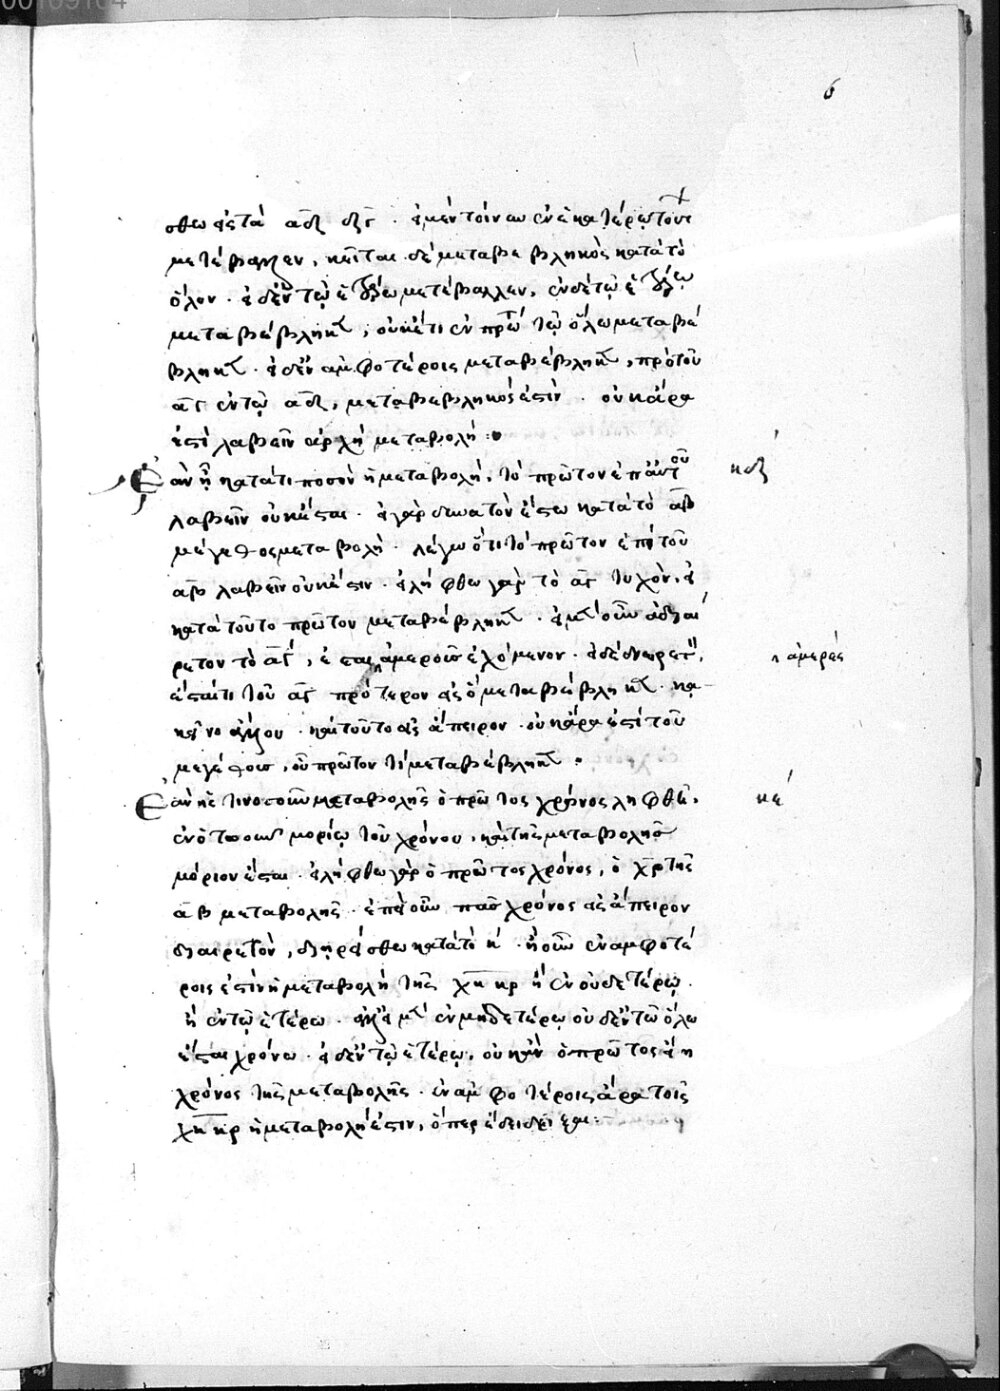 6
σθω εἰς τὰ αδ δγ. εἰ μὲν τοίνυν ἐν ἑκατέρῳ τούτων
μετέβαλλεν, κεῖται δὲ μεταβεβληκὸς κατὰ τὸ
ὅλον. εἰ δ' ἐν τῷ ἑτέρῳ μετέβαλλεν, ἐν δὲ τῷ ἑτέρῳ
μεταβέβληκεν, οὐκέτι ἐν πρώτῳ τῷ ὅλῳ μεταβέ
βληκεν. εἰ δ' ἐν ἀμφοτέροις μεταβέβληκεν, πρὸ τοῦ
αγ ἐν τῷ αδ, μεταβεβληκός ἐστιν. οὐκ ἄρα
ἐστὶ λαβεῖν ἀρχὴν μεταβολῆς:
Ἐὰν ᾖ κατά τι ποσὸν ἡ μεταβολή, τὸ πρῶτον ἐπ' αὐτοῦ
κδ
λαβεῖν οὐκ ἔσται. εἰ γὰρ δυνατὸν ἔστω κατὰ τὸ αβ
μέγεθος μεταβολή. λέγω ὅτι τὸ πρῶτον ἐπὶ τοῦ
αβ λαβεῖν οὐκ ἔστιν. εἰλήφθω γὰρ τὸ αγ τυχὸν, εἰ
κατὰ τοῦτο πρῶτον μεταβέβληκεν. εἰ μὲν οὖν ἀδιαί
ρετον τὸ αγ, ἔσται ἀμεροῦς ἐχόμενον. εἰ δὲ διαιρετὸν,
ἀμερὲς
ἔσται τι τοῦ αγ πρότερον εἰς ὃ μεταβέβληκεν. κα
κείνου ἄλλου. καὶ τοῦτο εἰς ἄπειρον. οὐκ ἄρα ἐστὶ τοῦ
μεγέθους, οὗ πρῶτόν τι μεταβέβληκεν.
Ἐάν τινος οὖν μεταβολῆς ὁ πρῶτος χρόνος ληφθῇ,
κε
ἐν ὁτῳοῦν μορίῳ τοῦ χρόνου, καὶ τῆς μεταβολῆς
μόριον ἔσται. εἰλήφθω γὰρ ὁ πρῶτος χρόνος, ὁ χρ τῆς
αβ μεταβολῆς. ἐπεὶ οὖν πᾶς χρόνος εἰς ἄπειρον
διαιρετὸν, διῃρείσθω κατὰ τὸ κ. ἢ οὖν ἐν ἀμφοτέ
ροις ἐστὶν ἡ μεταβολὴ τῆς χκ κρ ἢ ἐν οὐδετέρῳ.
ἢ ἐν τῷ ἑτέρῳ. ἀλλ' εἰ μὲν ἐν μηδετέρῳ οὐδ' ἐν τῷ ὅλῳ
ἔσται χρόνῳ. εἰ δ' ἐν τῷ ἑτέρῳ, οὐκ ἂν ὁ πρῶτος εἴη
χρόνος τῆς μεταβολῆς. ἐν ἀμφοτέροις ἄρα τοῖς
χκ κρ ἡ μεταβολή ἐστιν, ὅπερ ἔδει δεῖξαι: